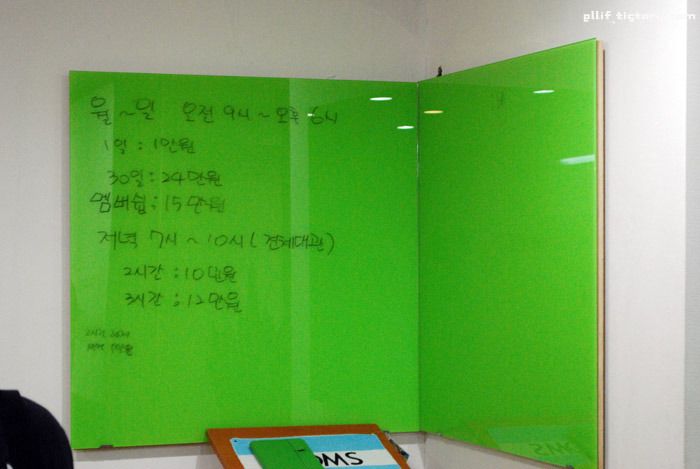 pllif.tistory.com
월 ~ 일 오전 9시 ~ 오후 6시
1일 : 1만원
30일 : 24만원
멤버쉽 : 15만원
저녁 7시 ~ 10시 (전체대관)
2시간 : 10만원
3시간 : 12만원
OMS